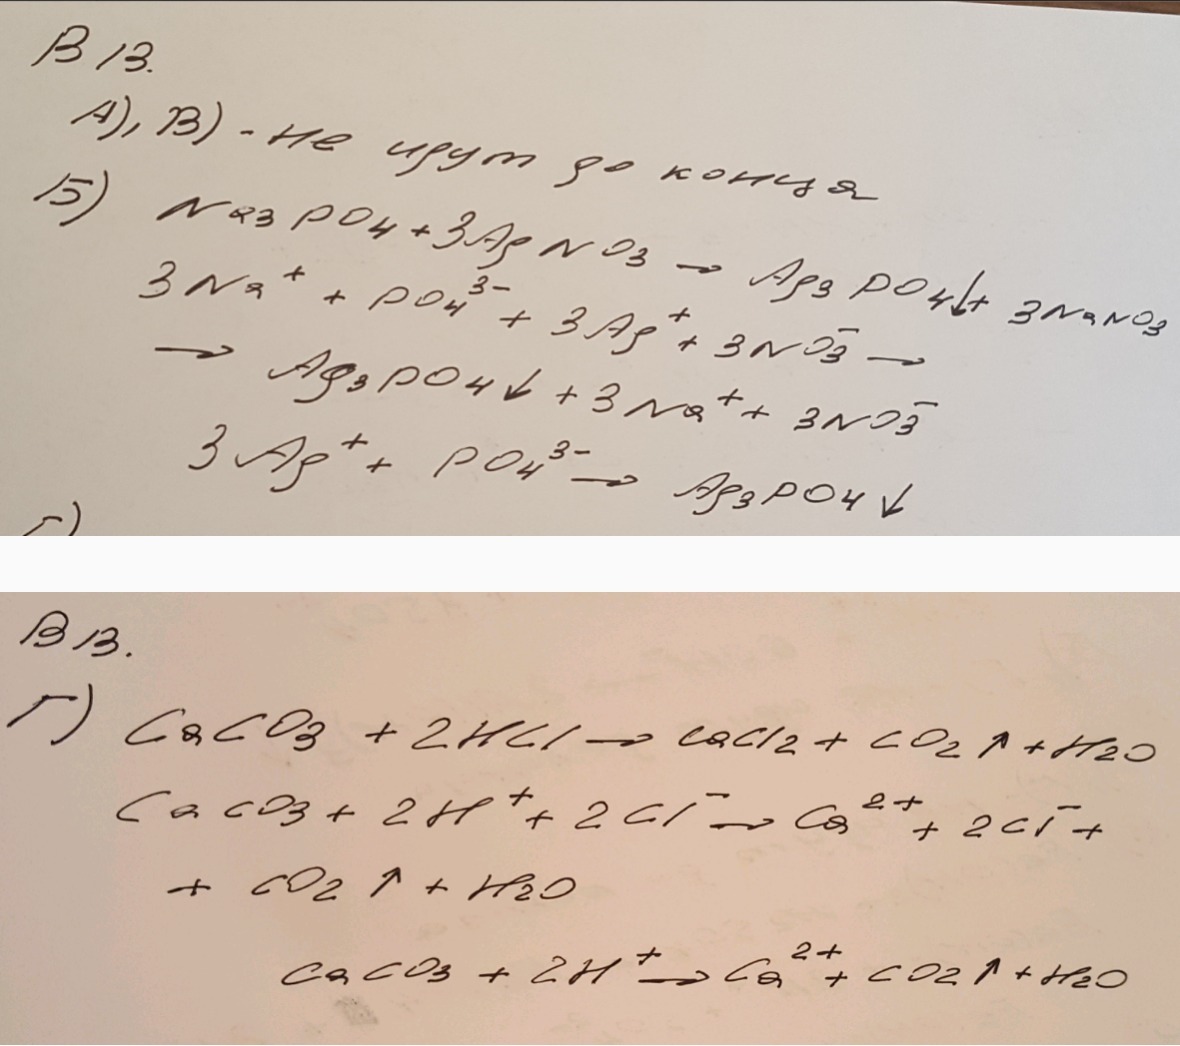 В 13.
А), В) - не идут до конца
Б) Na3PO4 + 3AgNO3 → Ag3PO4↓ + 3NaNO3
3Na⁺ + PO4³⁻ + 3Ag⁺ + 3NO3⁻ →
→ Ag3PO4↓ + 3Na⁺ + 3NO3⁻
3Ag⁺ + PO4³⁻ → Ag3PO4↓
Г)
В 13.
Г) CaCO3 + 2HCl → CaCl2 + CO2↑ + H2O
CaCO3 + 2H⁺ + 2Cl⁻ → Ca²⁺ + 2Cl⁻ +
+ CO2↑ + H2O
CaCO3 + 2H⁺ → Ca²⁺ + CO2↑ + H2O